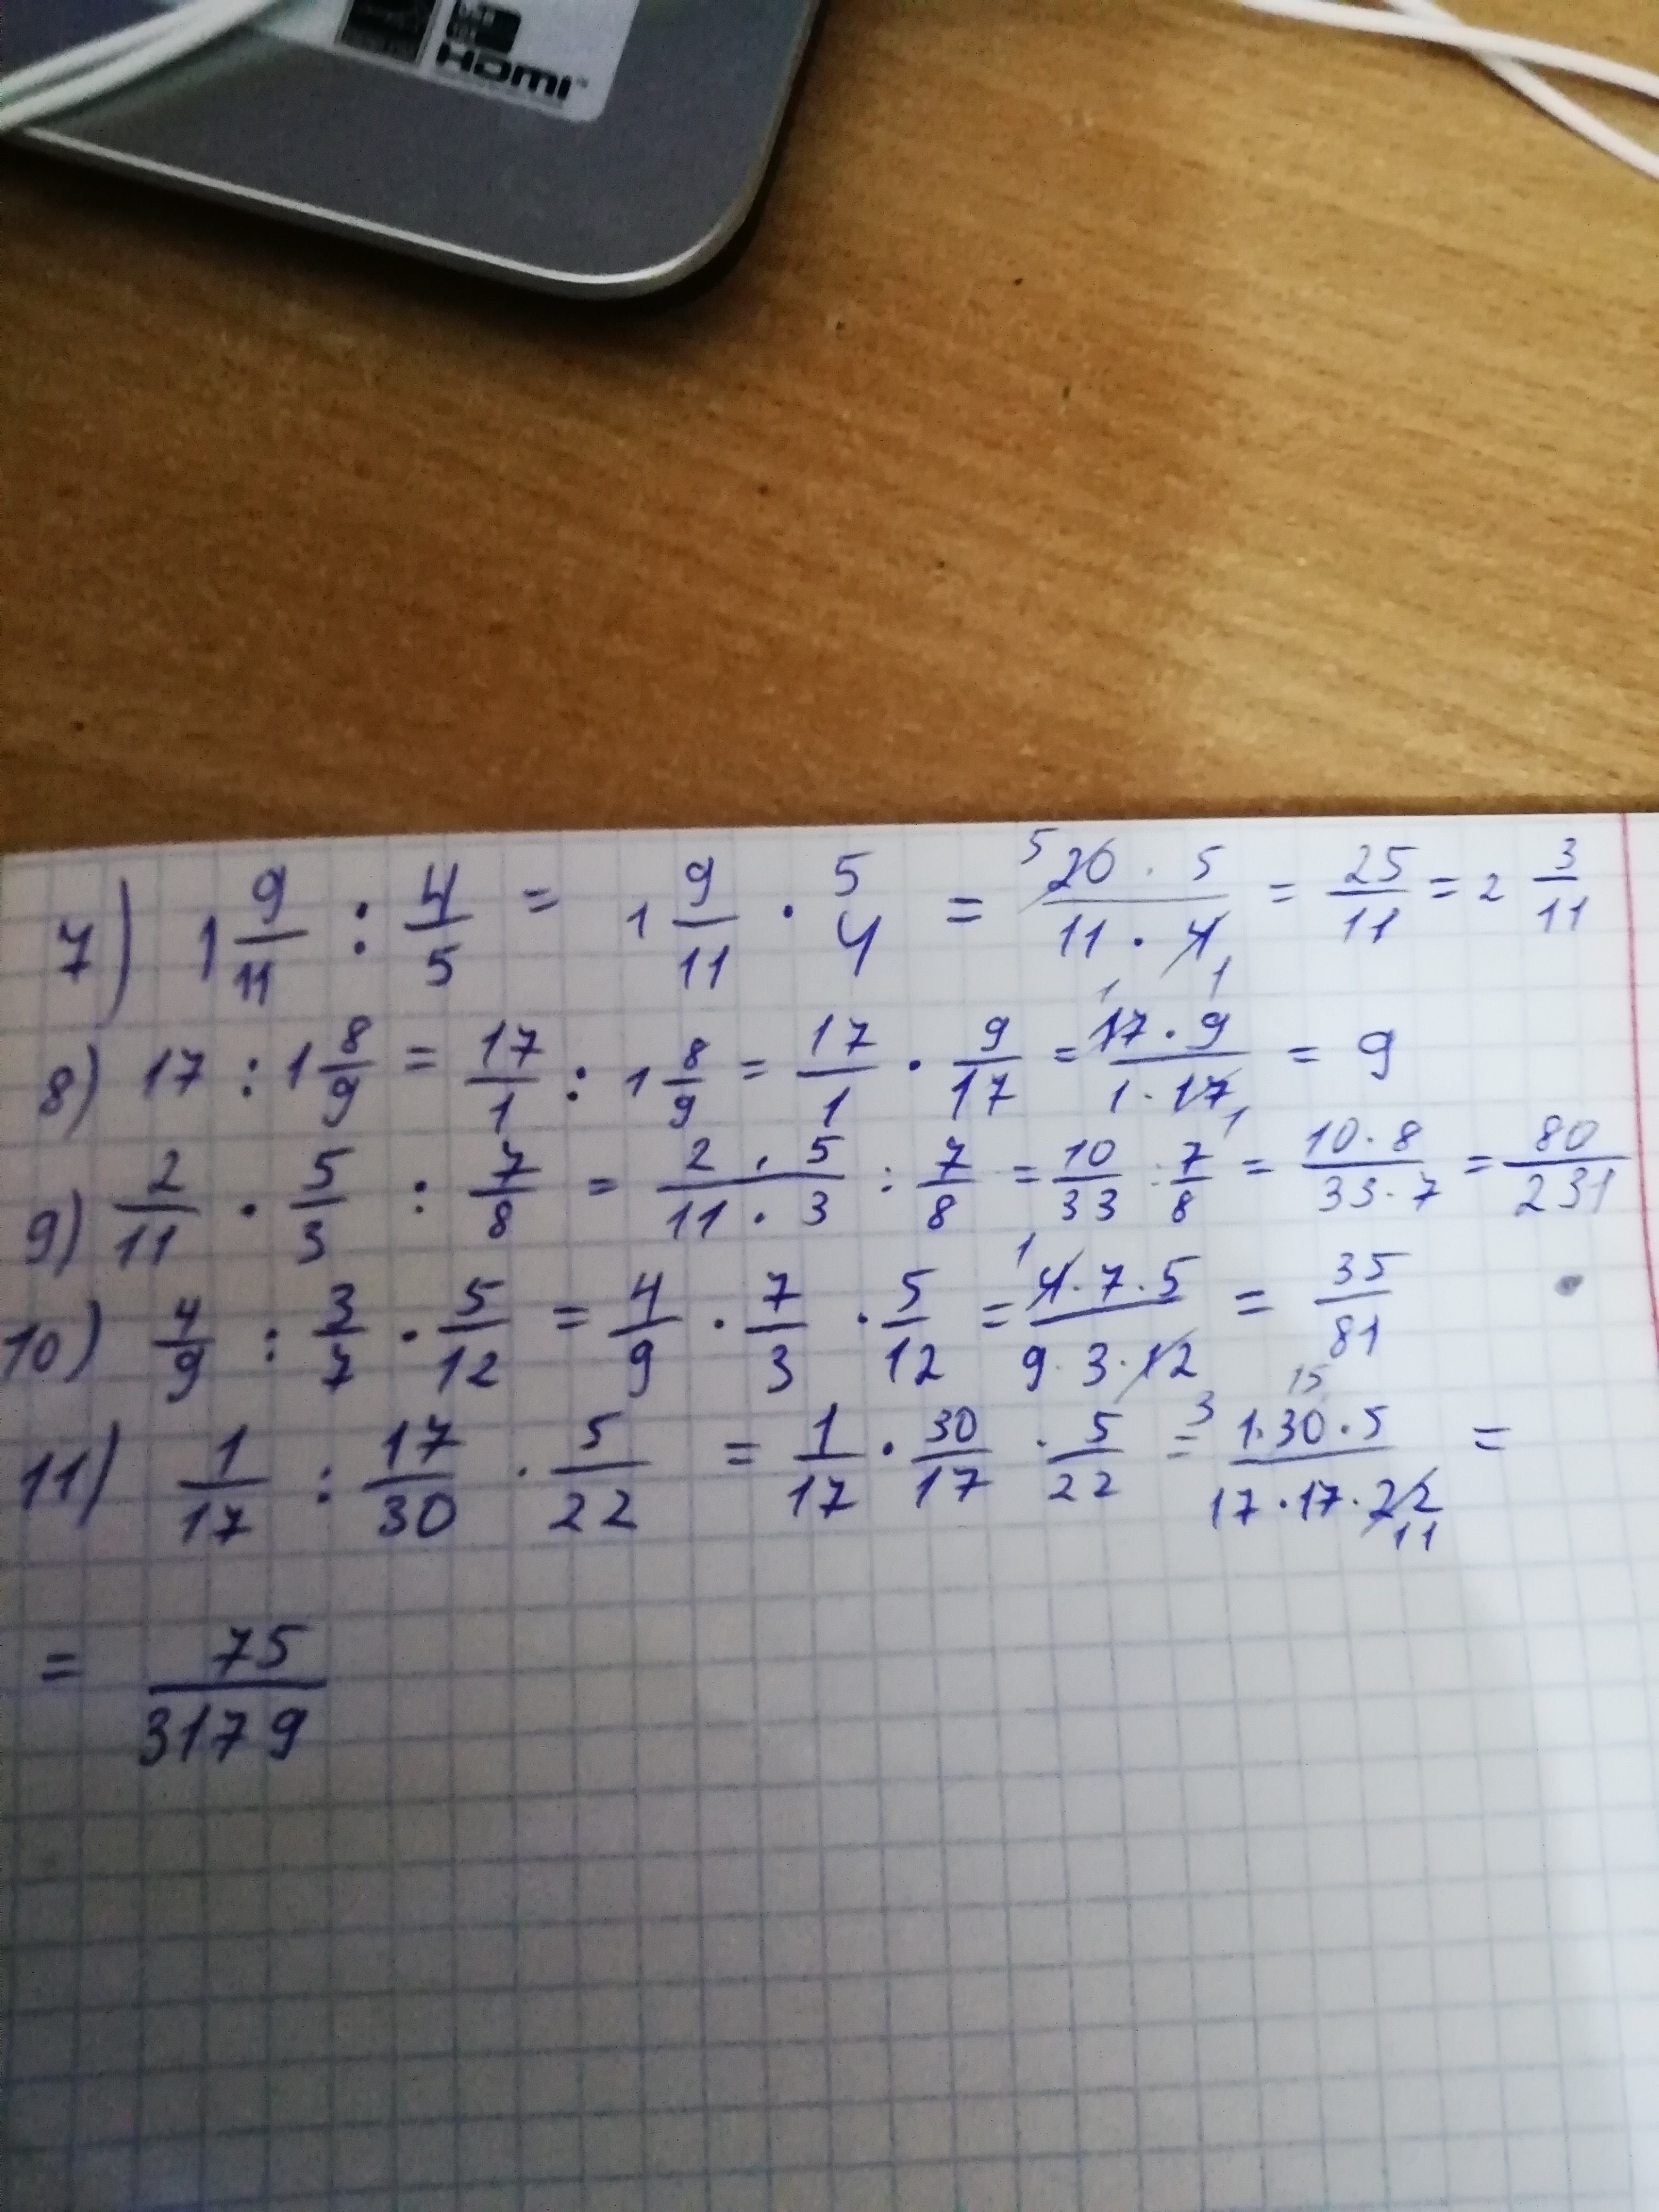 HDMI™
7) 1 9/11 : 4/5 = 1 9/11 · 5/4 = 5 20 · 5 / 11 · 4 1 = 25/11 = 2 3/11
8) 17 : 1 8/9 = 17/1 : 1 8/9 = 17/1 · 9/17 = 1 17 · 9 / 1 · 17 1 = 9
9) 2/11 · 5/3 : 7/8 = 2 · 5 / 11 · 3 : 7/8 = 10/33 : 7/8 = 10 · 8 / 33 · 7 = 80/231
10) 4/9 : 3/7 · 5/12 = 4/9 · 7/3 · 5/12 = 1 4 · 7 · 5 / 9 · 3 · 12 3 = 35/81
11) 1/17 : 17/30 · 5/22 = 1/17 · 30/17 · 5/22 = 1 · 30 15 · 5 / 17 · 17 · 22 11 =
= 75/3179